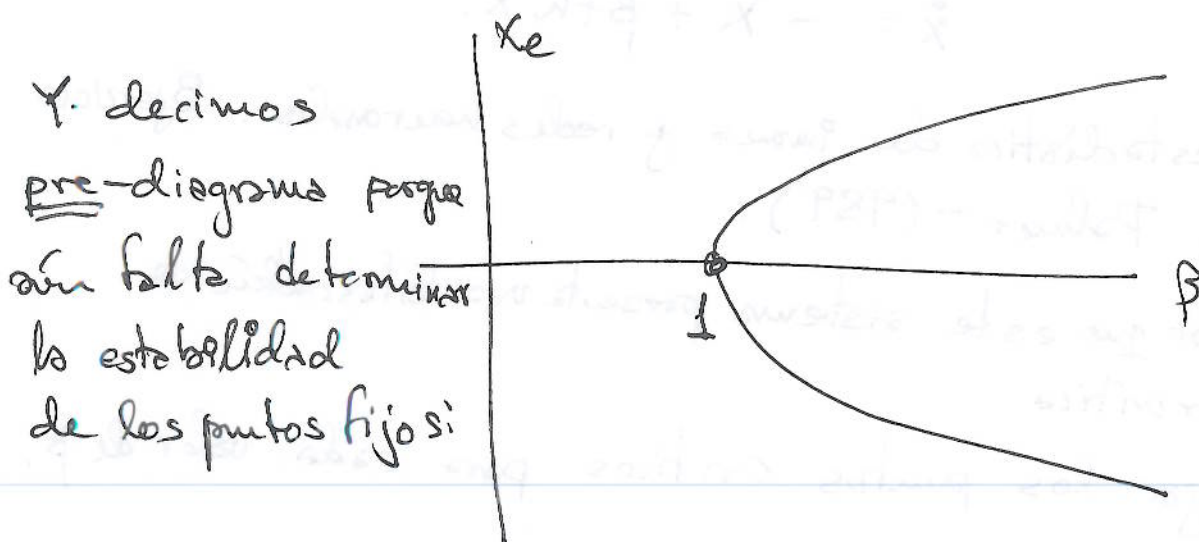 Xe
Y decimos
pre-diagrama porque
aún falta determinar
la estabilidad
de los puntos fijos:
1
β